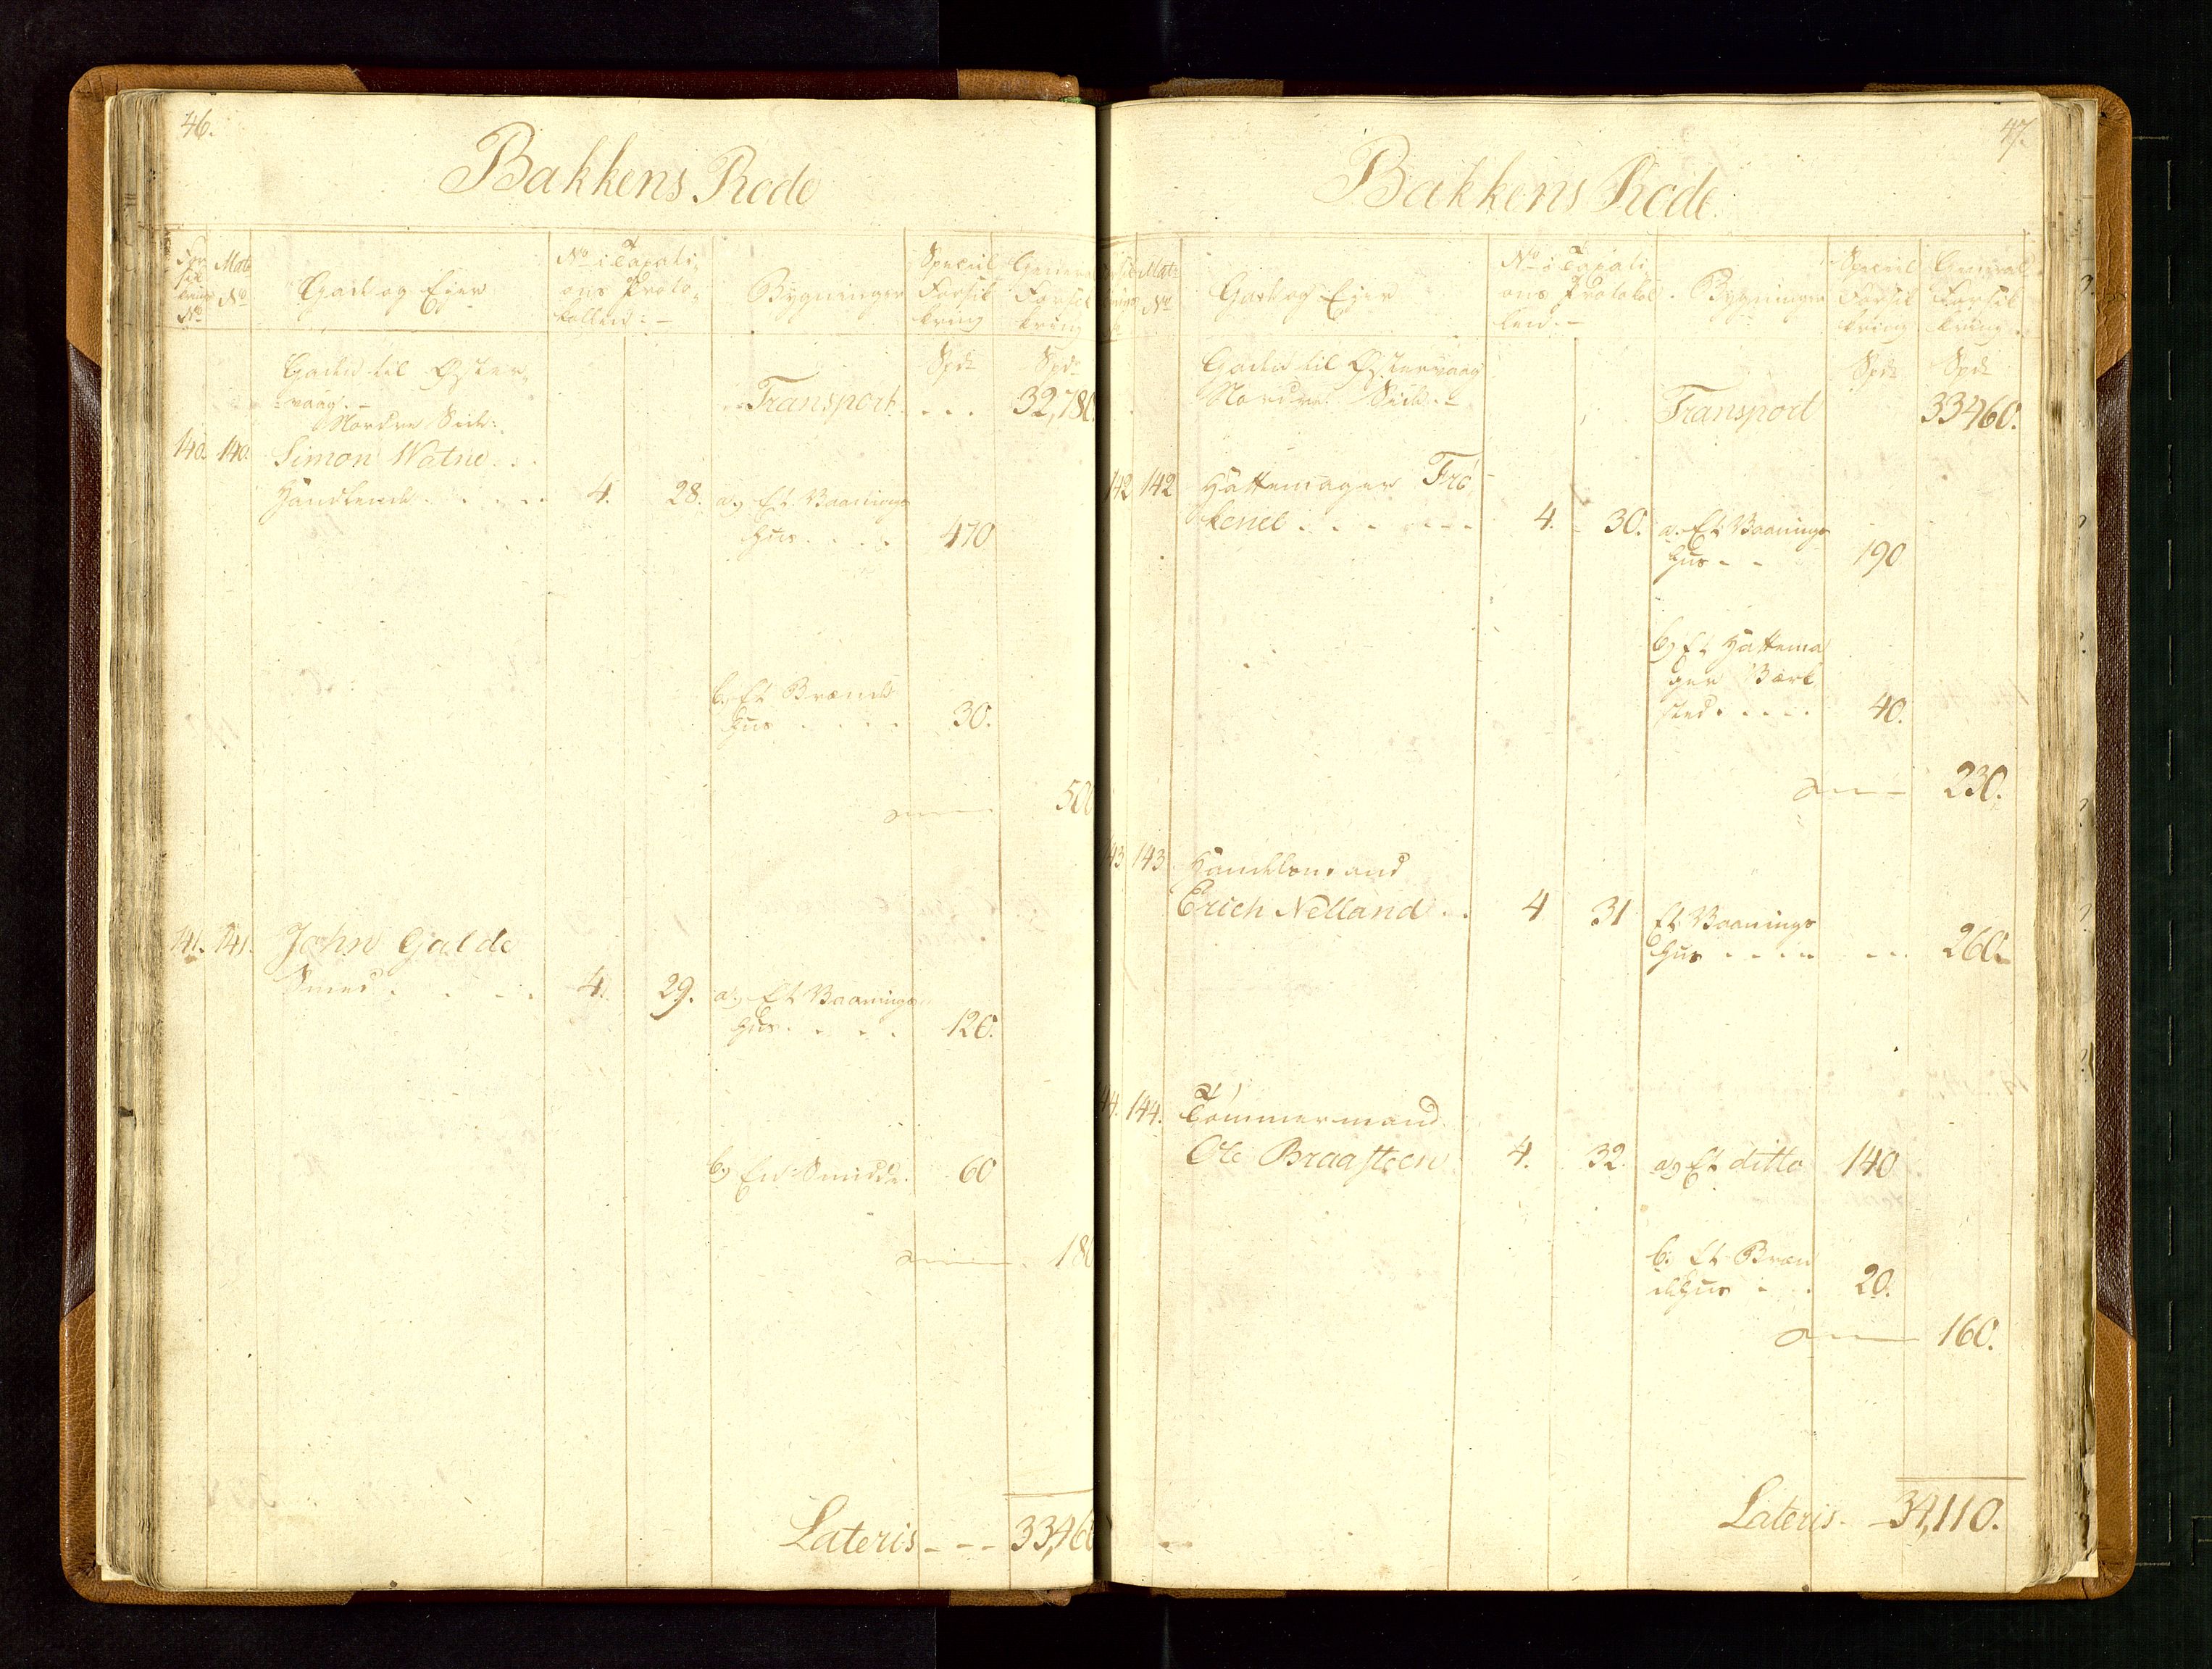 46.
Bakkens Rode
For
sik
krings
No
Mat:
No
Gade og Ejer
No i Taxati-
ons Proto-
kollen:-
Bygninger
Speciel
Forsik
kring
General
Forsik
kring
Gaden til Øster-
vaag.-
Nordre Side:
Spd:
Spd:
Transport. . . . 32,780.
140. 140. Simon Watne . .
Handlende . . . . . 4. 28. a, Et Vaanings
huus. . . . 470
b, Et Brænde
huus . . . . 30.
500
141. 141. John Galde
Smed . . . . 4. 29. a, Et Vaanings
huus. . . . 120.
b, En Smidde. 60
180
Lateris - - - 33,460
47.
Bakkens Rode.
Mat:
No
Gade og Ejer
No i Taxati
ons Protokol
len.-
Bygninger
Speciel
Forsik
kring
General
Forsik
kring.
Gaden til Østervaag
Nordre Side.-
Spd:
Spd:
Transport 33460.
142 142 Hattemager Frö-
kenel . . . . . . 4. 30. a. Et Vaanings
huus - - 190
b, Et Hattema
ger Værk
sted. . . . . 40.
230.
143 143 Handelsmand
Erich Nelland . . 4 31 Et Vaanings
huus . . . . . . 260.
144. 144. Tömmermand
Ole Braasteen 4. 32. a, Et ditto 140
b. Et Bræn
dehuus . . 20.
160.
Lateris. - 34,110.